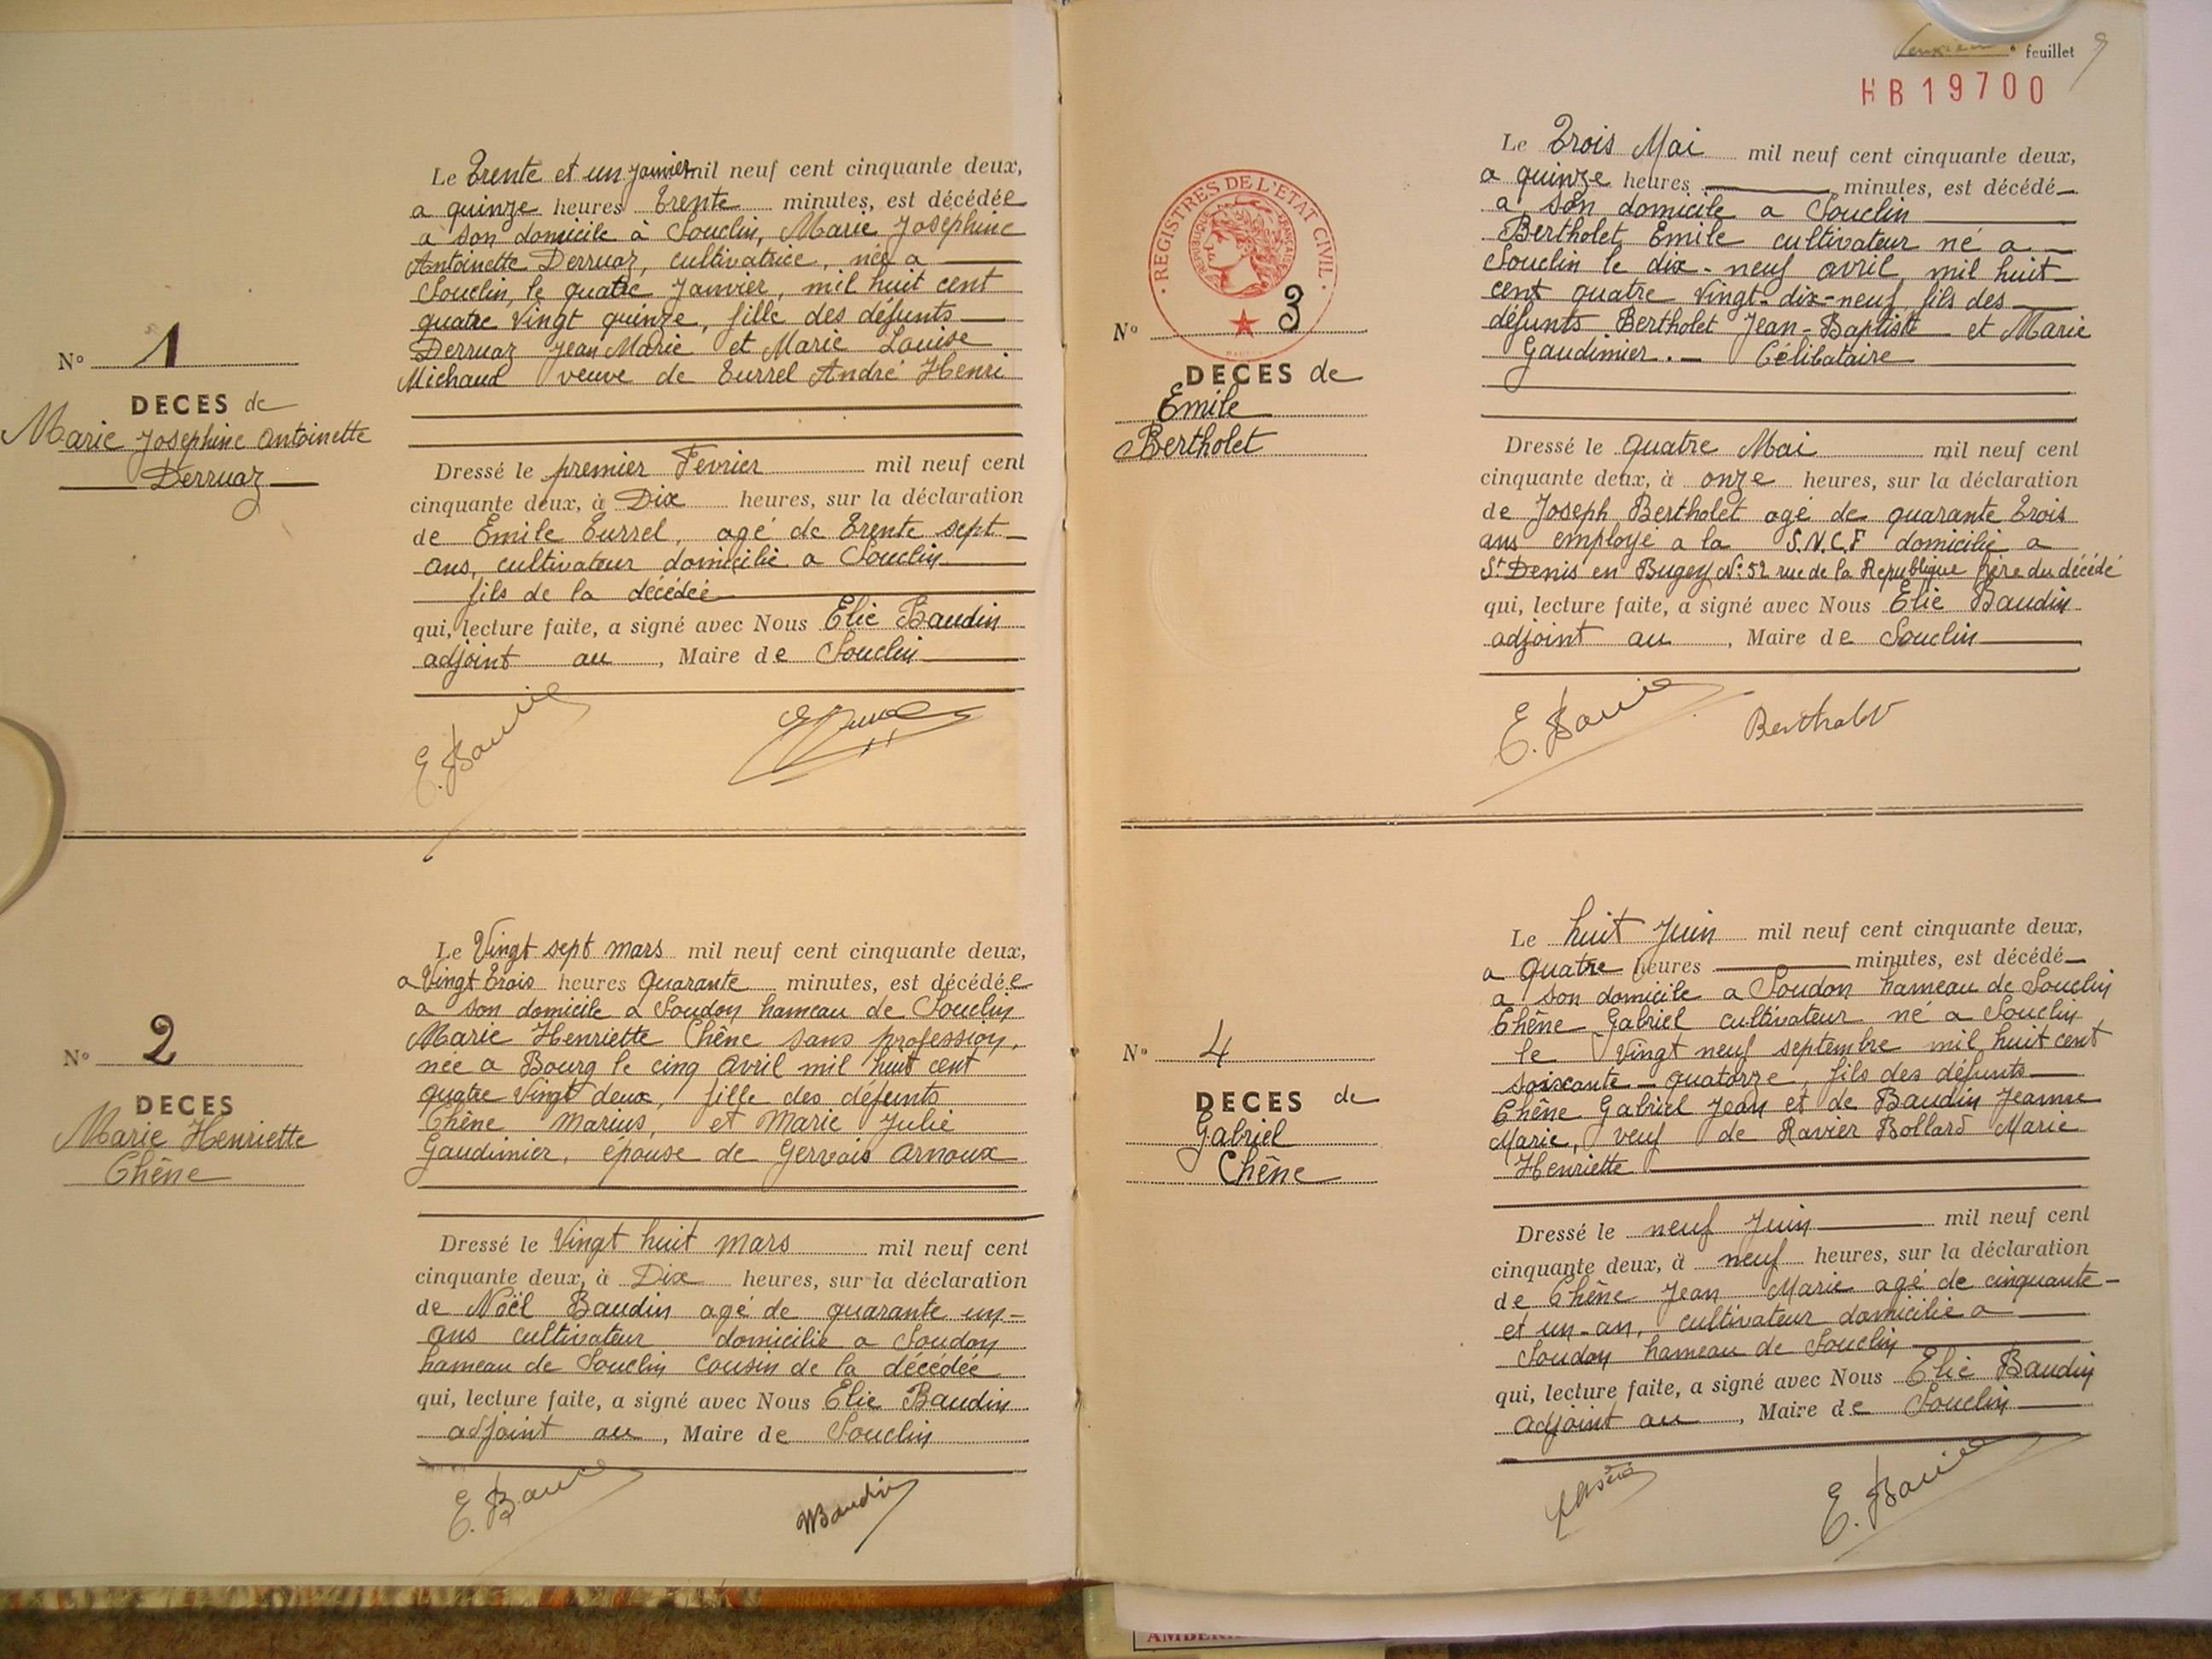 Le Trente et un Janvier mil neuf cent cinquante deux,
a quinze heures Trente minutes, est décédée
a son domicile à Souclin, Marie Josephine
Antoinette Derruaz, cultivatrice, née a
Souclin, le quatre Janvier, mil huit cent
quatre Vingt quinze, fille des défunts
Derruaz Jean Marie et Marie Louise
Michaud veuve de Turrel André Henri
N° 1
DECES de
Marie Josephine Antoinette
Derruaz
Dressé le premier Fevrier mil neuf cent
cinquante deux, à Dix heures, sur la déclaration
de Emile Turrel, agé de Trente sept
ans, cultivateur domicilié a Souclin
fils de la décédée
qui, lecture faite, a signé avec Nous Elie Baudin
adjoint au , Maire de Souclin
E. Baudin
Le Vingt sept mars mil neuf cent cinquante deux,
a Vingt Trois heures Quarante minutes, est décédée
a son domicile a Soudon hameau de Souclin
Marie Henriette Chêne sans profession,
née a Bourg le cinq Avril mil huit cent
quatre Vingt deux, fille des défunts
Chêne Marius, et Marie Julie
Gaudimier, épouse de Gervais Arnoux
N° 2
DECES
Marie Henriette
Chêne
Dressé le Vingt huit mars mil neuf cent
cinquante deux, à Dix heures, sur la déclaration
de Noël Baudin agé de quarante un
ans cultivateur domicilié a Soudon
hameau de Souclin cousin de la décédée
qui, lecture faite, a signé avec Nous Elie Baudin
adjoint au , Maire de Souclin
E. Baudin Baudin
feuillet 9
HB19700
REGISTRES DE L'ETAT CIVIL
REPUBLIQUE FRANCAISE
Le Trois Mai mil neuf cent cinquante deux,
a quinze heures minutes, est décédé
a son domicile a Souclin
Bertholet Emile cultivateur né a
Souclin le dix-neuf avril mil huit
cent quatre Vingt-dix-neuf, fils des
défunts Bertholet Jean-Baptiste et Marie
Gaudimier. Célibataire
N° 3
DECES de
Emile
Bertholet
Dressé le quatre Mai mil neuf cent
cinquante deux, à onze heures, sur la déclaration
de Joseph Bertholet agé de quarante Trois
ans employé a la S.N.C.F domicilié a
St Denis en Bugey N° 52 rue de la Republique frère du décédé
qui, lecture faite, a signé avec Nous Elie Baudin
adjoint au , Maire de Souclin
E. Baudin Bertholet
Le huit Juin mil neuf cent cinquante deux,
a Quatre heures minutes, est décédé
a son domicile a Soudon hameau de Souclin
Chêne Gabriel cultivateur né a Souclin
le Vingt neuf septembre mil huit cent
soixante-quatorze, fils des défunts
Chêne Gabriel Jean et de Baudin Jeanne
Marie, veuf de Ravier Bollard Marie
Henriette
N° 4
DECES de
Gabriel
Chêne
Dressé le neuf Juin mil neuf cent
cinquante deux, à neuf heures, sur la déclaration
de Chêne Jean Marie agé de cinquante
et un-an, cultivateur domicilié a
Soudon hameau de Souclin
qui, lecture faite, a signé avec Nous Elie Baudin
adjoint au , Maire de Souclin
E. Baudin